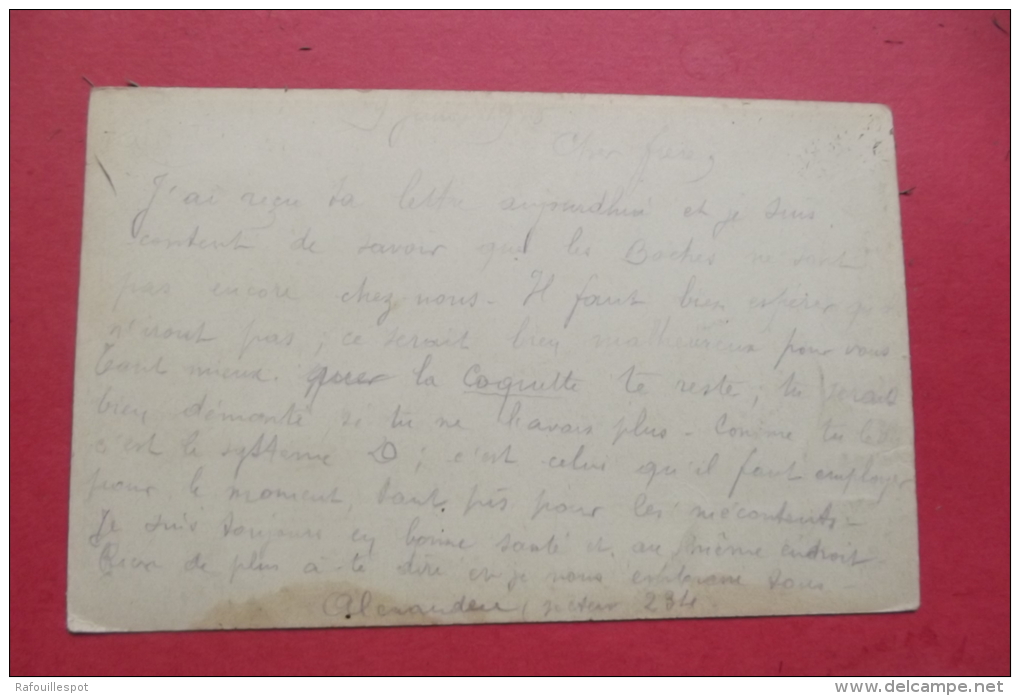 Juin
Cher frère,
J'ai reçu ta lettre aujourdhui et je suis
content de savoir que les Boches ne sont
pas encore chez nous - Il faut bien espérer
n'iront pas; ce serait bien malheureux pour vous -
Tant mieux que la Coquette te reste; tu serais
bien démonté si tu ne l'avais plus - Comme tu le
c'est le système D; c'est celui qu'il faut employer
pour le moment, tant pis pour les mécontents -
Je suis toujours en bonne santé et au même endroit -
Rien de plus à te dire et je vous embrasse tous -
secteur 234
Rafouillespot
www.delcampe.net